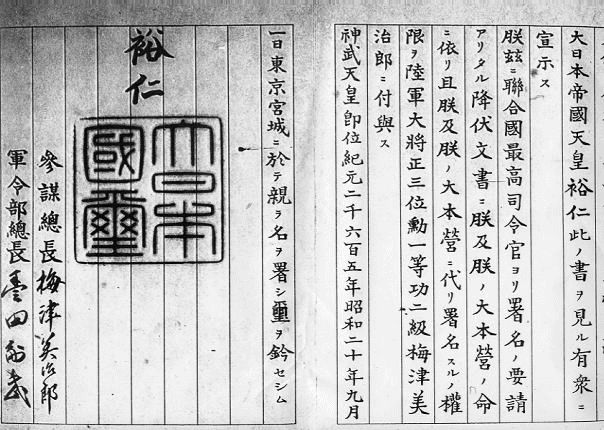 大日本帝國天皇裕仁此ノ書ヲ見ル有衆ニ
宣示ス
朕茲ニ聯合國最高司令官ヨリ署名ノ要請
アリタル降伏文書ニ朕及朕ノ大本營ノ命
ニ依リ且朕及朕ノ大本營ニ代リ署名スルノ權
限ヲ陸軍大將正三位勳一等功二級梅津美
治郎ニ付與ス
神武天皇卽位紀元二千六百五年昭和二十年九月
一日東京宮城ニ於テ親ラ名ヲ署シ璽ヲ鈐セシム
裕仁
大日本
國璽
參謀總長梅津美治郎
軍令部總長豊田副武